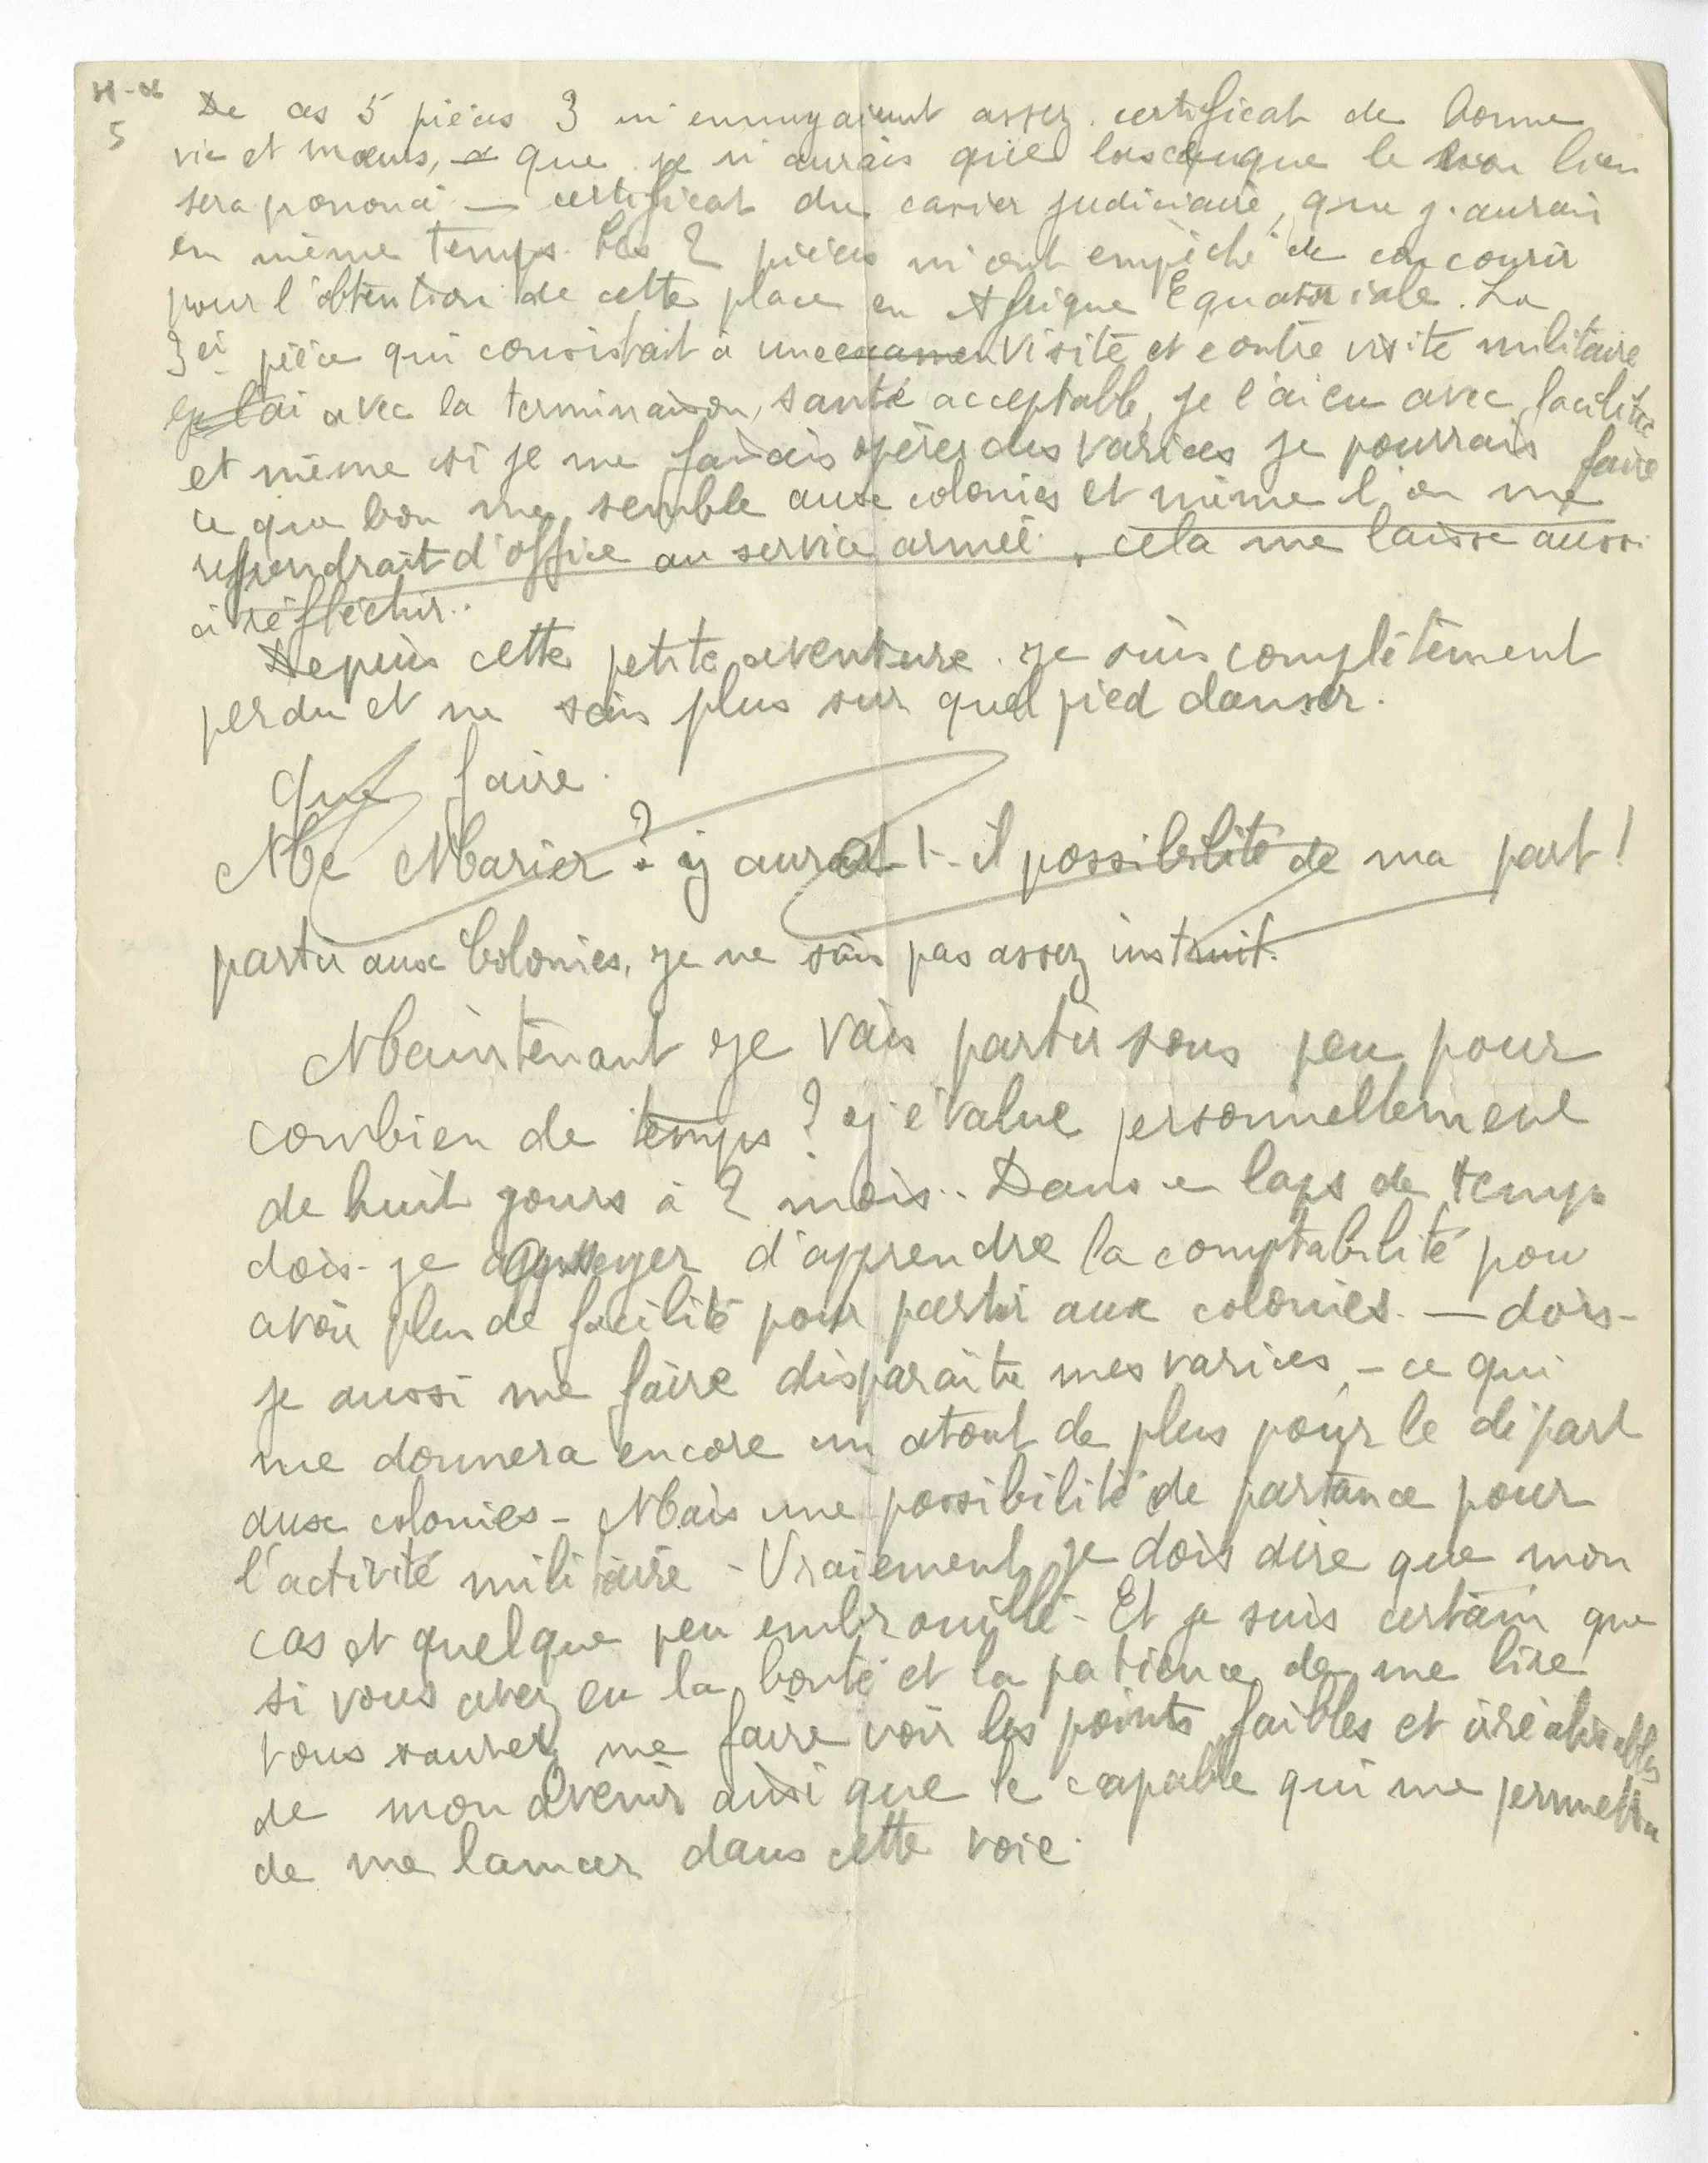 H-06
5
De ces 5 pièces 3 m'ennuyaient assez. certificat de bonne
vie et mœurs, que je n'aurais que lorsque le non lieu
sera prononcé — certificat du casier judiciaire, que j'aurais
en même temps. Ces 2 pièces m'ont empêché de concourir
pour l'obtention de cette place en Afrique Equatoriale. La
3ei pièce qui consistait à une examen visite et contre visite militaire
avec la terminaison, santé acceptable, je l'ai eu avec facilité
et même si je me faisais opérer des varices je pourrais faire
ce que bon me semble aux colonies et même l'on me
reprendrait d'office au service armée. cela me laisse aussi
à réfléchir..
Depuis cette petite aventure. je suis complètement
perdu et ne sais plus sur quel pied danser.
Que faire.
Me Marier? y aurait-il possibilité de ma part!
partir aux Colonies, je ne suis pas assez instruit.
Maintenant je vais partir sous peu pour
combien de temps? j'évalue personnellement
de huit jours à 2 mois.. Dans ce laps de temps
dois-je essayer d'apprendre la comptabilité pour
avoir plus de facilité pour partir aux colonies. — dois-
je aussi me faire disparaitre mes varices, - ce qui
me donnera encore un atout de plus pour le départ
aux colonies - Mais une possibilité de partance pour
l'activité militaire - Vraiement je dois dire que mon
cas et quelque peu embrouillé - Et je suis certain que
si vous avez eu la bonté et la patience de me lire
vous saurez me faire voir les points faibles et iréalisables
de mon avenir ainsi que le capable qui me permettra
de me lancer dans cette voie.